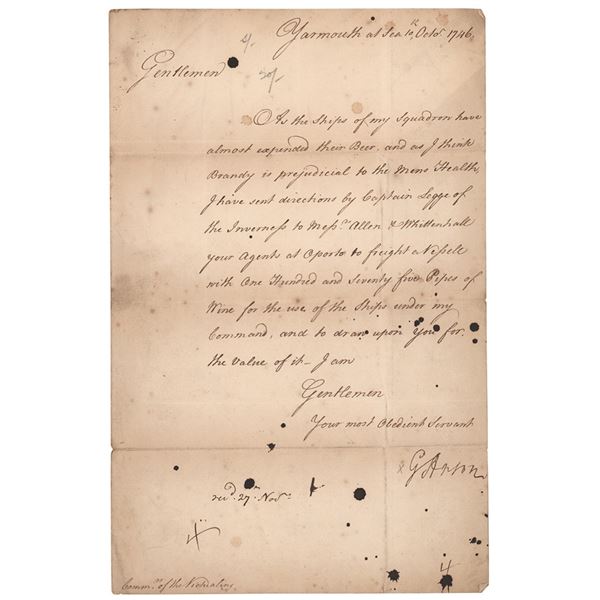 4/-
Yarmouth at Sea 10th Octor. 1746.
Gentlemen
20/-
As the Ships of my Squadron have
almost expended their Beer, and as I think
Brandy is prejudicial to the Mens Health,
I have sent directions by Captain Legge of
the Inverness to Messrs. Allen & Whittenhall
your Agents at Oporto to freight a Vessell
with One Hundred and Seventy five Pipes of
Wine for the use of the Ships under my
Command, and to draw upon You for
the Value of it – I am
Gentlemen
Your most Obedient Servant
G Anson
recd. 27th Novr.
4
4
Commrs. of the Victualing